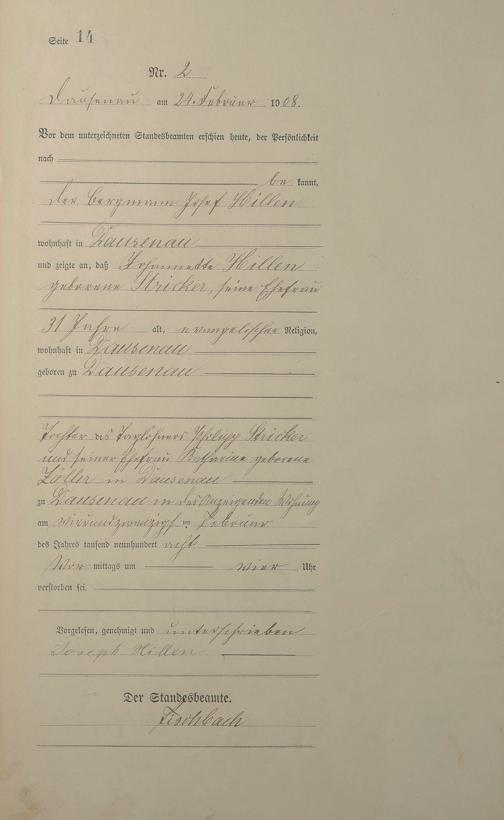 Seite 14
Nr. 2
Dausenau am 24. Februar 1908.
Vor dem unterzeichneten Standesbeamten erschien heute, der Persönlichkeit
nach
be kannt,
der Bergmann Josef Hillen
wohnhaft in Dausenau
und zeigte an, daß Johannette Hillen
geborene Stricker, seine Ehefrau
31 Jahre alt, evangelischer Religion,
wohnhaft in Dausenau
geboren zu Dausenau
Tochter des Taglöhners Philipp Stricker
und seiner Ehefrau Katharine geborene
Zöller in Dausenau
zu Dausenau in des Anzeigenden Wohnung
am vierundzwanzigsten Februar
des Jahres tausend neunhundert acht
Vor mittags um vier Uhr
verstorben sei.
Vorgelesen, genehmigt und unterschrieben
Joseph Hillen
Der Standesbeamte.
Fischbach